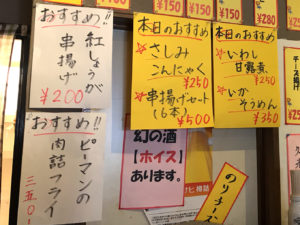 ¥150
¥150
¥150
¥150
¥280
¥250
おすすめ!!
紅しょうが
串揚げ
¥200
本日のおすすめ
☆さしみ
こんにゃく
¥250
☆串揚げセット
(6本)
¥500
本日のおすすめ
☆いわし
甘露煮
¥250
☆いか
そうめん
¥350
おすすめ!!
ピーマンの
肉詰フライ
三五〇
幻の酒
【ホイス】
あります。
のりチーズ